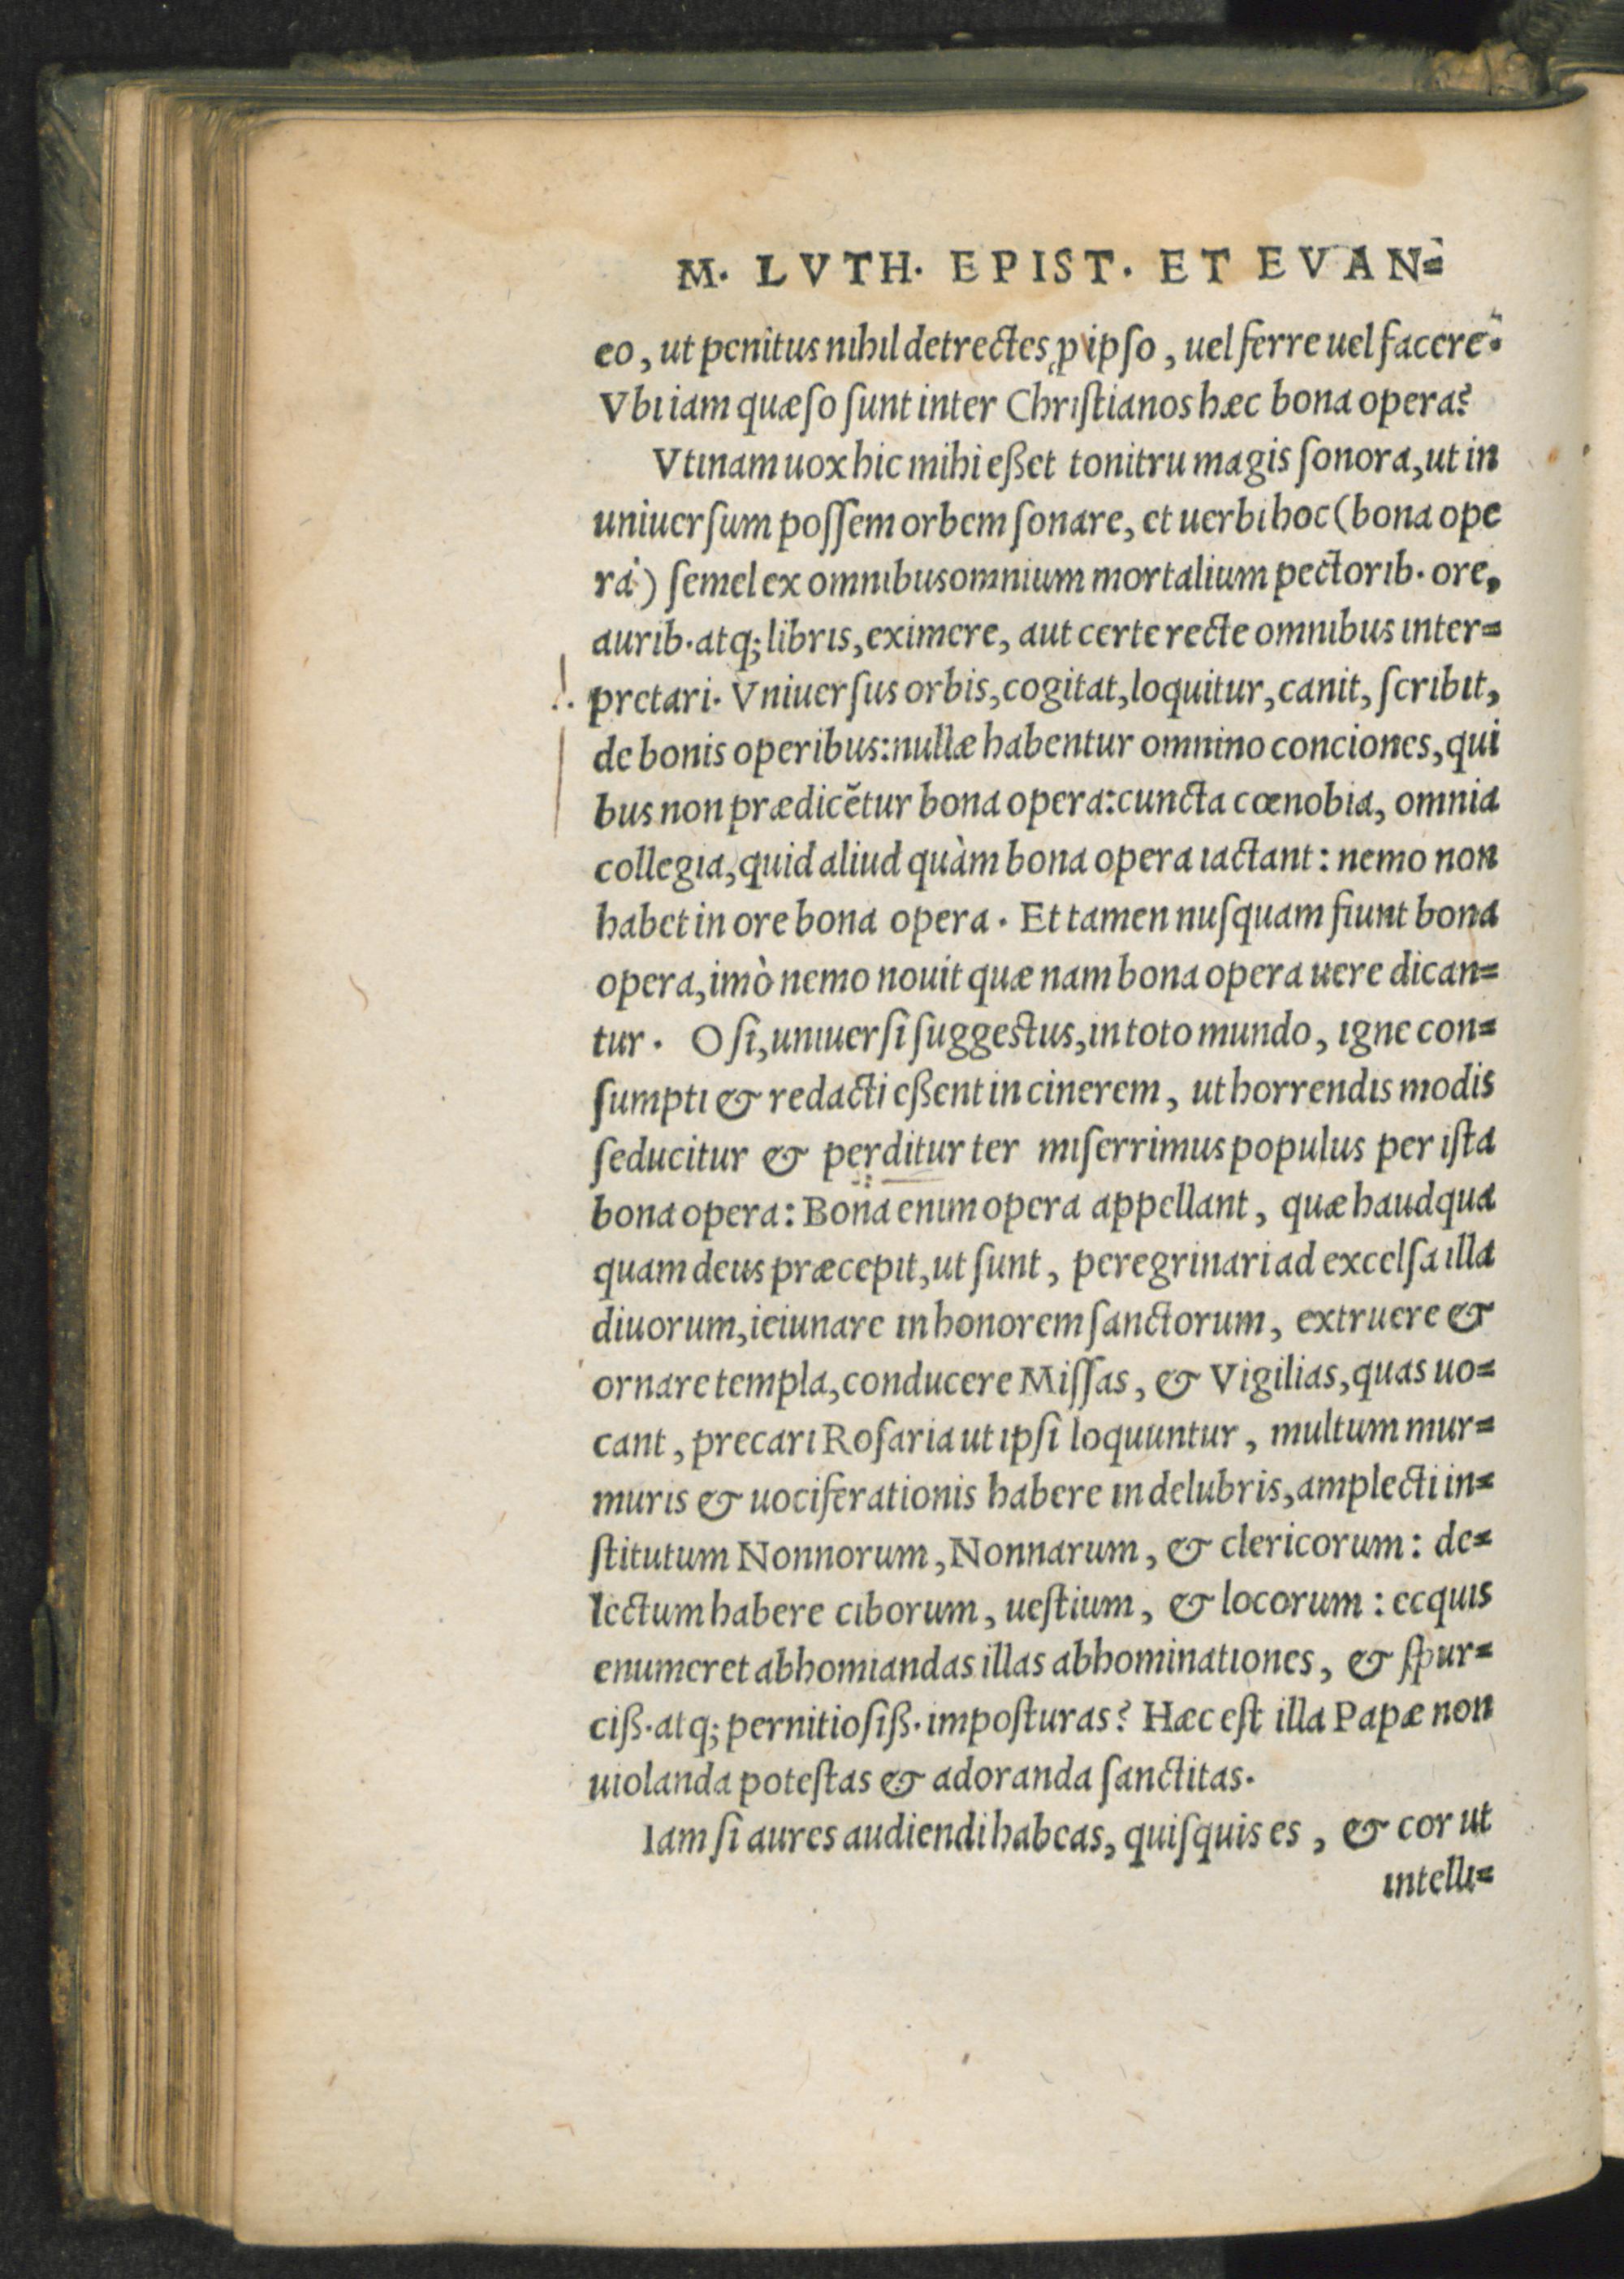 M. LVTH. EPIST. ET EVAN=
eo, ut penitus nihil detrectes ꝓ ipſo, uel ferre uel facere.
Vbi iam quæſo ſunt inter Chriſtianos hæc bona opera?
Vtinam uox hic mihi eßet tonitru magis ſonora, ut in
uniuerſum poſſem orbem ſonare, et uerbi hoc (bona ope
ra) ſemel ex omnibus omnium mortalium pectorib. ore,
aurib. atq; libris, eximere, aut certe recte omnibus inter=
pretari. Vniuerſus orbis, cogitat, loquitur, canit, ſcribit,
de bonis operibus: nullæ habentur omnino conciones, qui
bus non prædicẽtur bona opera: cuncta cœnobia, omnia
collegia, quid aliud quàm bona opera iactant: nemo non
habet in ore bona opera. Et tamen nuſquam fiunt bona
opera, imò nemo nouit quæ nam bona opera uere dican=
tur. O ſi, uniuerſi ſuggeſtus, in toto mundo, igne con=
ſumpti & redacti eßent in cinerem, ut horrendis modis
ſeducitur & perditur ter miſerrimus populus per iſta
bona opera: Bona enim opera appellant, quæ haudqua
quam deus præcepit, ut ſunt, peregrinari ad excelſa illa
diuorum, ieiunare in honorem ſanctorum, extruere &
ornare templa, conducere Miſſas, & Vigilias, quas uo=
cant, precari Roſaria ut ipſi loquuntur, multum mur=
muris & uociferationis habere in delubris, amplecti in=
ſtitutum Nonnorum, Nonnarum, & clericorum: de=
lectum habere ciborum, ueſtium, & locorum: ecquis
enumeret abhomiandas illas abhominationes, & ſpur=
ciß. atq; pernitioſiß. impoſturas? Hæc eſt illa Papæ non
uiolanda poteſtas & adoranda ſanctitas.
Iam ſi aures audiendi habeas, quiſquis es, & cor ut
intelli=